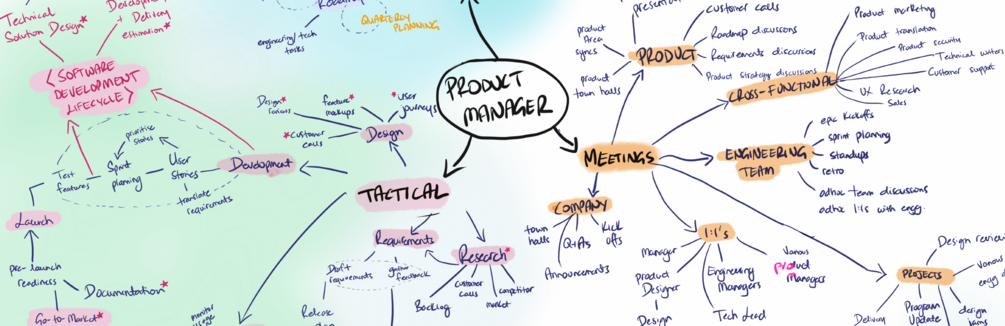 Technical
Solution Design*
Development
+ Delivery
estimation*
engineering/tech
tasks
QUARTERLY
PLANNING
<SOFTWARE
DEVELOPMENT
LIFECYCLE>
prioritise
stories
Test
features
Sprint
planning
User
Stories
translate
requirements
Development
Launch
pre-launch
readiness
Documentation*
Go-to-Market*
PRODUCT
MANAGER
Design*
reviews
feature*
mockups
*user
journeys
*customer
calls
Design
TACTICAL
Requirements
Draft
requirements
gather
feedback
Release
Research*
Backlog
customer
calls
competitor
market
MEETINGS
PRODUCT
product
Area
syncs
product
town halls
customer calls
Roadmap discussions
Requirements discussions
Product strategy discussions
CROSS-FUNCTIONAL
Product marketing
Product translation
Product security
Technical writers
Customer support
UX Research
Sales
ENGINEERING
TEAM
epic kickoffs
sprint planning
standups
retro
adhoc team discussions
adhoc 1:1s with engg.
COMPANY
town
halls
Q+As
Kick
offs
Announcements
1:1's
Manager
Product
Designer
Design
Engineering
Managers
Tech Lead
Various
product
Managers
PROJECTS
Design review
various
Delivery
Program
Update
design